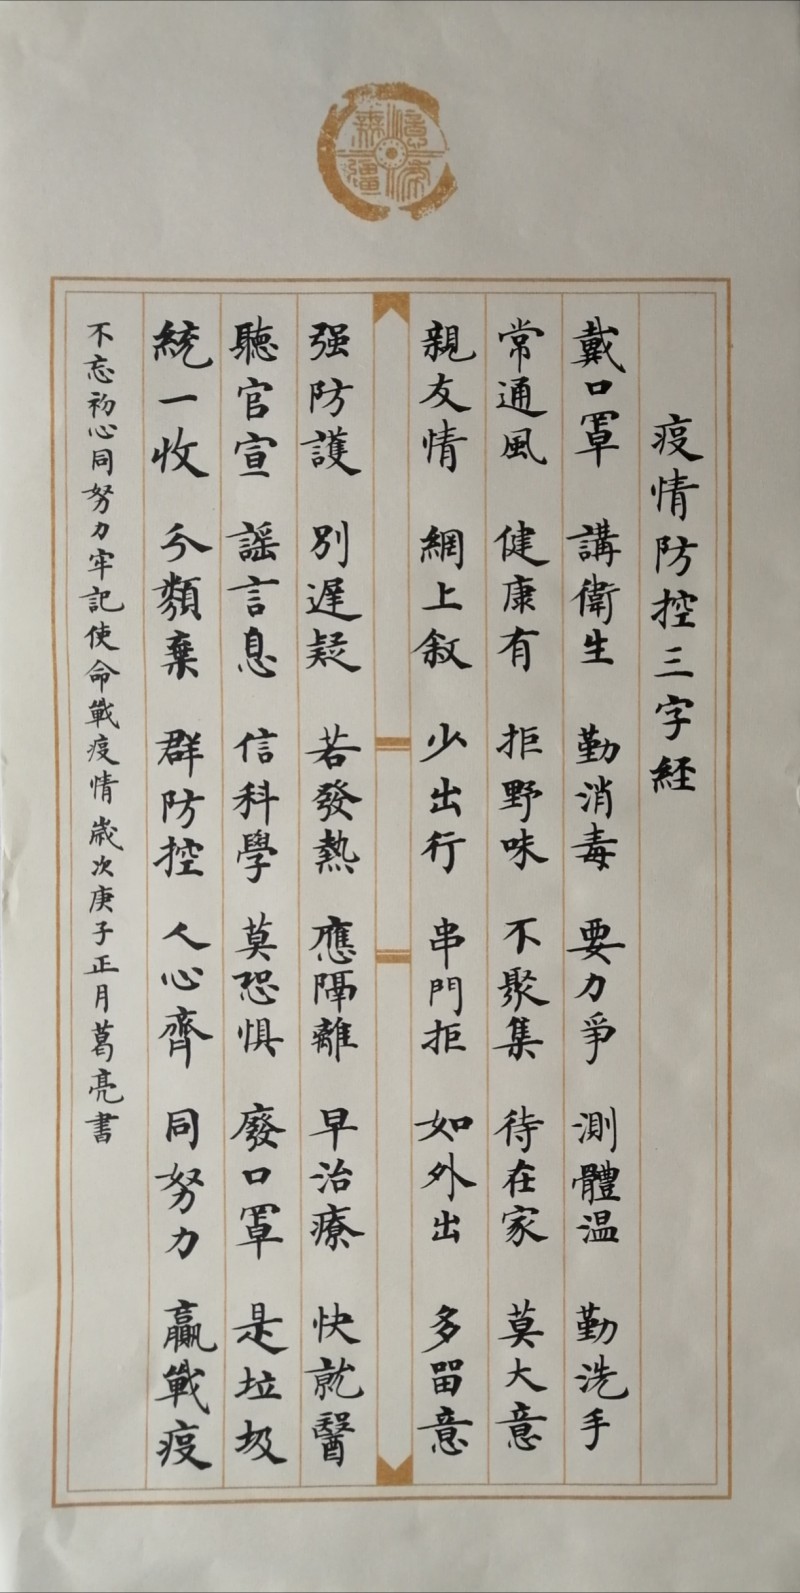 疫情防控三字經
戴口罩 講衛生 勤消毒 要力爭 測體温 勤洗手
常通風 健康有 拒野味 不聚集 待在家 莫大意
親友情 網上敘 少出行 串門拒 如外出 多留意
强防護 別遲疑 若發熱 應隔離 早治療 快就醫
聽官宣 謡言息 信科學 莫恐惧 廢口罩 是垃圾
統一收 分類棄 群防控 人心齊 同努力 贏戰疫
不忘初心同努力牢記使命戰疫情歲次庚子正月葛亮書